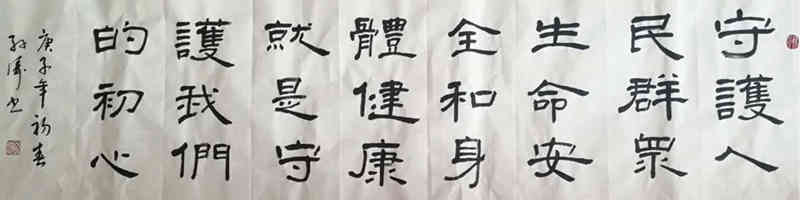 守護人
民群眾
生命安
全和身
體健康
就是守
護我們
的初心
庚子年初春
书